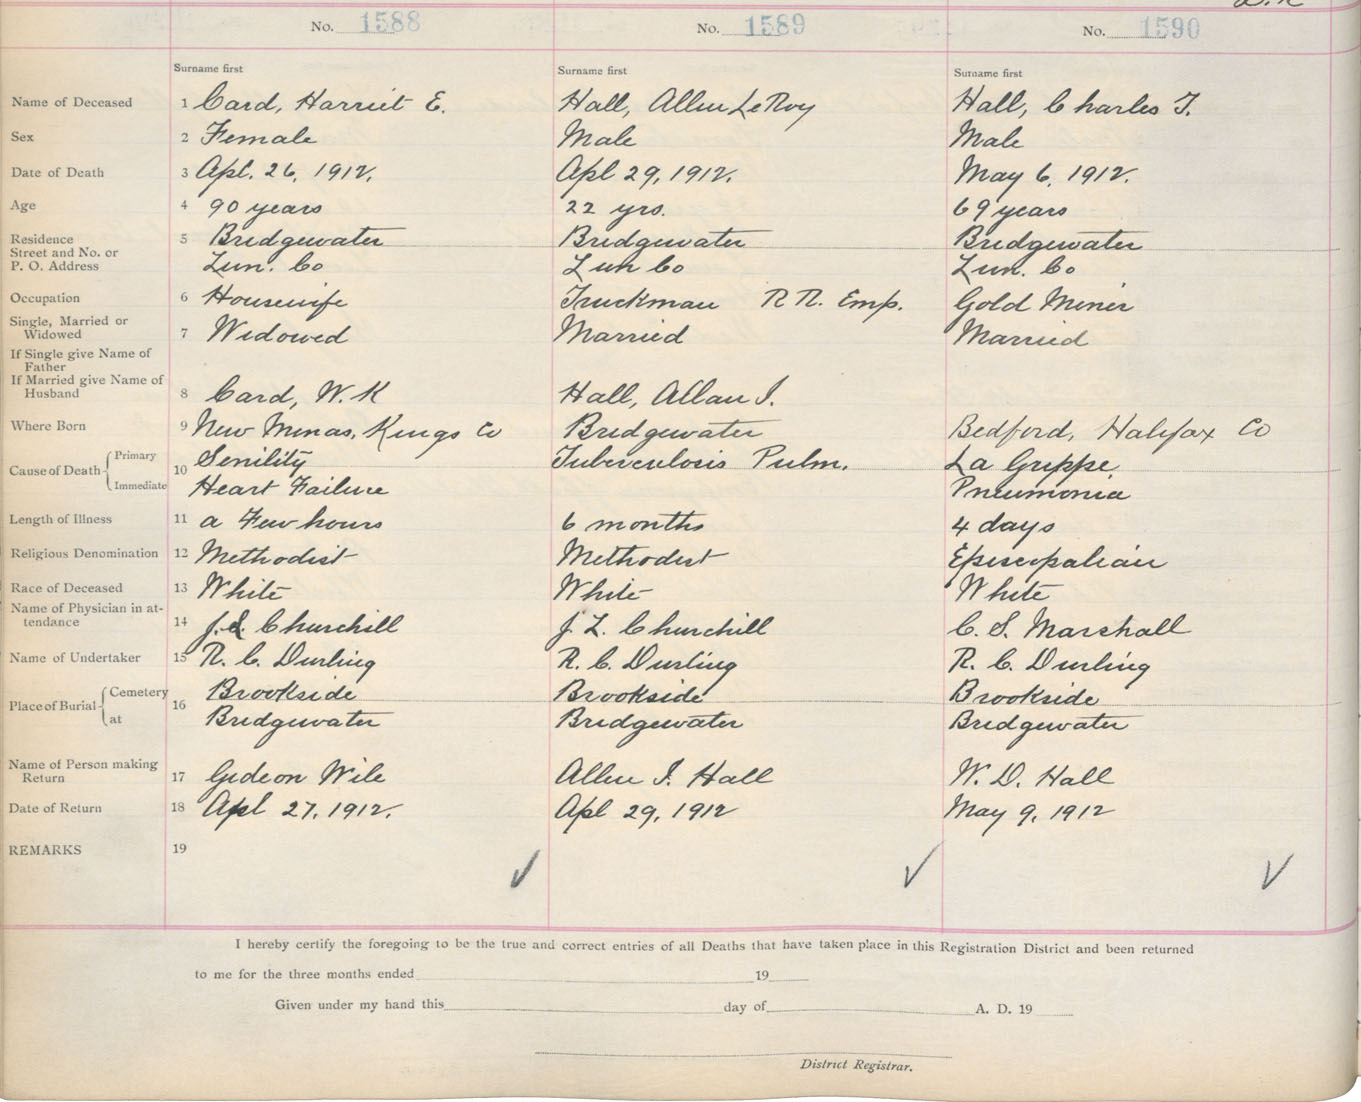 No. 1588 No. 1589 No. 1590
Surname first Surname first Surname first
Name of Deceased 1 Card, Harriet E. Hall, Allen LeRoy Hall, Charles T.
Sex 2 Female Male Male
Date of Death 3 Apl. 26, 1912. Apl 29, 1912. May 6, 1912.
Age 4 90 years 22 yrs. 69 years
Residence 5 Bridgewater Bridgewater Bridgewater
Street and No. or
P. O. Address Lun. Co Lun Co Lun. Co
Occupation 6 Housewife Truckman R R. Emp. Gold Miner
Single, Married or
Widowed 7 Widowed Married Married
If Single give Name of
Father
If Married give Name of
Husband 8 Card, W. K Hall, Allan I.
Where Born 9 New Minas, Kings Co Bridgewater Bedford, Halifax Co
Cause of Death 10 Primary Senility Tuberculosis Pulm. La Grippe
Immediate Heart Failure Pneumonia
Length of Illness 11 a Few hours 6 months 4 days
Religious Denomination 12 Methodist Methodist Episcopalian
Race of Deceased 13 White White White
Name of Physician in at-
tendance 14 J. L. Churchill J L. Churchill C. S. Marshall
Name of Undertaker 15 R. C. Durling R. C. Durling R. C. Durling
Place of Burial 16 Cemetery Brookside Brookside Brookside
at Bridgewater Bridgewater Bridgewater
Name of Person making
Return 17 Gideon Wile Allen I. Hall W. D. Hall
Date of Return 18 Apl 27, 1912. Apl 29, 1912 May 9, 1912
REMARKS 19
I hereby certify the foregoing to be the true and correct entries of all Deaths that have taken place in this Registration District and been returned
to me for the three months ended 19
Given under my hand this day of A. D. 19
District Registrar.